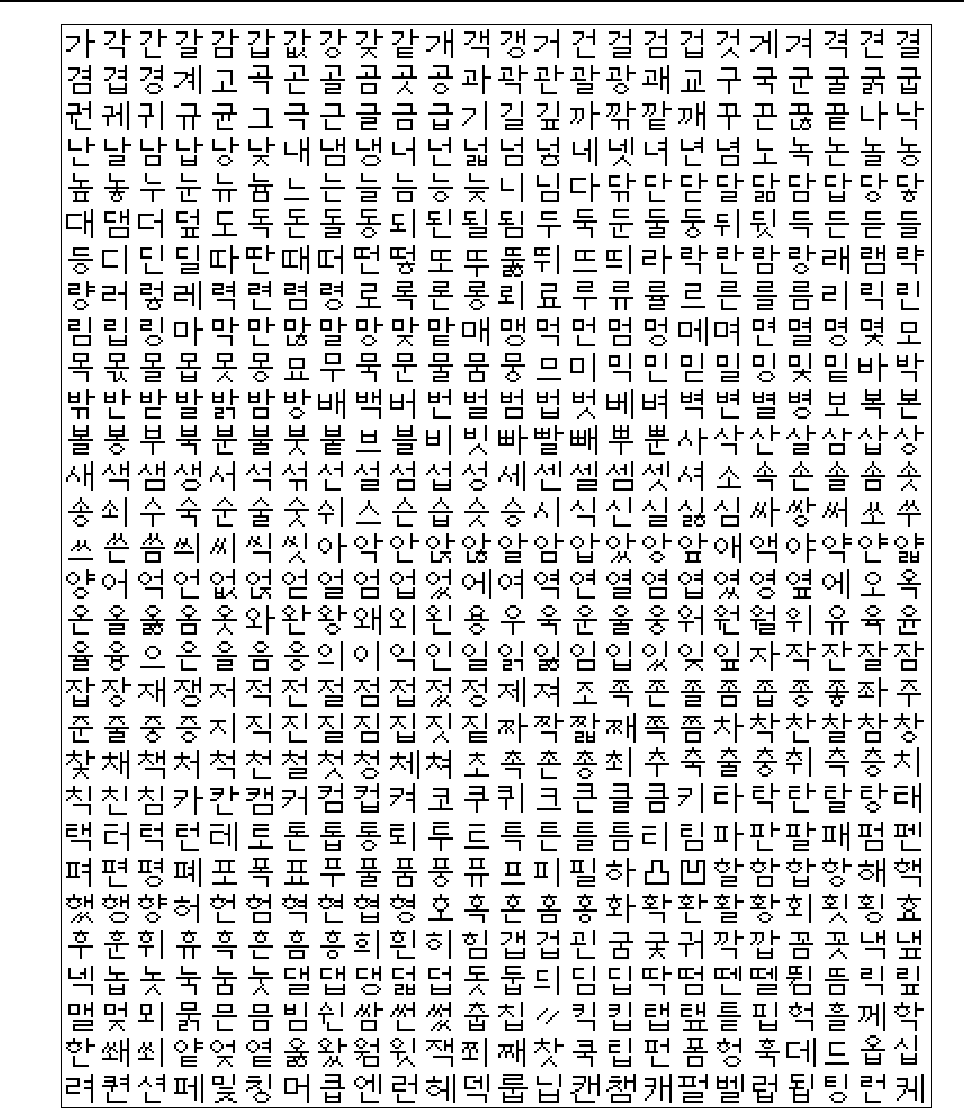 가 각 간 갈 감 갑 값 강 갖 같 개 객 갱 거 건 걸 검 겁 것 게 겨 격 견 결
겸 겹 경 계 고 곡 곤 골 곰 곳 공 과 곽 관 괄 광 괘 교 구 국 군 굴 굵 굽
권 궤 귀 규 균 그 극 근 글 금 급 기 길 깊 까 깎 깥 깨 꾸 끈 끊 끝 나 낙
난 날 남 납 낭 낮 내 냄 냉 너 넌 넓 넘 넣 네 넷 녀 년 념 노 녹 논 놀 농
높 놓 누 눈 뉴 늄 느 는 늘 늠 능 늦 니 님 다 닦 단 닫 달 닮 담 답 당 닿
대 댐 더 덮 도 독 돈 돌 동 되 된 될 됨 두 둑 둔 둘 둥 뒤 뒷 득 든 듣 들
등 디 딘 딜 따 딴 때 떠 떤 떻 또 뚜 뚫 뛰 뜨 띄 라 락 란 람 랑 래 램 략
량 러 렇 레 력 련 렴 령 로 록 론 롱 뢰 료 루 류 률 르 른 를 름 리 릭 린
림 립 링 마 막 만 많 말 망 맞 맡 매 맹 먹 먼 멈 멍 메 며 면 멸 명 몇 모
목 몫 몰 몹 못 몽 묘 무 묵 문 물 뭄 뭉 므 미 믹 민 믿 밀 밍 및 밑 바 박
밖 반 받 발 밝 밤 방 배 백 버 번 벌 범 법 벗 베 벼 벽 변 별 병 보 복 본
볼 봉 부 북 분 불 붓 붙 브 블 비 빗 빠 빨 빼 뿌 뿐 사 삭 산 살 삼 삽 상
새 색 샘 생 서 석 섞 선 설 섬 섭 성 세 센 셀 셈 셋 셔 소 속 손 솔 솜 솟
송 쇠 수 숙 순 술 숫 쉬 스 슨 습 슷 승 시 식 신 실 싫 심 싸 쌍 써 쏘 쑤
쓰 쓴 씀 씌 씨 씩 씻 아 악 안 앉 않 알 암 압 았 앙 앞 애 액 야 약 얀 얇
양 어 억 언 없 얹 얻 얼 엄 업 었 에 여 역 연 열 염 엽 였 영 옆 예 오 옥
온 올 옳 옴 옷 와 완 왕 왜 외 왼 용 우 욱 운 울 웅 워 원 월 위 유 육 윤
율 융 으 은 을 음 응 의 이 익 인 일 읽 잃 임 입 있 잊 잎 자 작 잔 잘 잠
잡 장 재 쟁 저 적 전 절 점 접 젔 정 제 져 조 족 존 졸 좀 좁 종 좋 좌 주
준 줄 중 증 지 직 진 질 짐 집 짓 짙 짜 짝 짧 째 쪽 쯤 차 착 찬 찰 참 창
찾 채 책 처 척 천 철 첫 청 체 쳐 초 촉 촌 총 최 추 축 출 충 취 측 층 치
칙 친 침 카 칸 캠 커 컴 컵 켜 코 쿠 퀴 크 큰 클 큼 키 타 탁 탄 탈 탕 태
택 터 턱 턴 테 토 톤 톱 통 퇴 투 트 특 튼 틀 틈 티 팀 파 판 팔 패 펌 펜
펴 편 평 폐 포 폭 표 푸 풀 품 풍 퓨 프 피 필 하 凸 凹 할 함 합 항 해 핵
했 행 향 허 헌 험 혁 현 협 형 호 혹 혼 홈 홍 화 확 환 활 황 회 횟 횡 효
후 훈 휘 휴 흑 흔 흠 흥 희 흰 히 힘 갭 겁 괸 굼 궂 궈 깍 깝 꼼 꼿 낵 냎
넉 놉 놋 눅 눔 눗 댈 댑 댕 덟 덥 돗 둡 듸 딤 딥 딱 떰 뗀 뗄 뙴 뜸 릭 맆
맬 멎 뫼 묽 믄 믐 빔 쉰 쌈 썬 썼 춥 칩 〃 킥 킵 탭 탶 틀 핍 헉 흘 께 학
한 쇄 쐬 얕 엊 옅 옳 왔 웜 윗 잭 죄 째 찻 쿡 팁 펀 폼 헝 훅 데 드 옵 십
려 퀀 션 페 및 칭 머 큽 엔 런 헤 덱 룹 닙 캔 챔 캐 펄 벨 럽 됩 팅 런 케